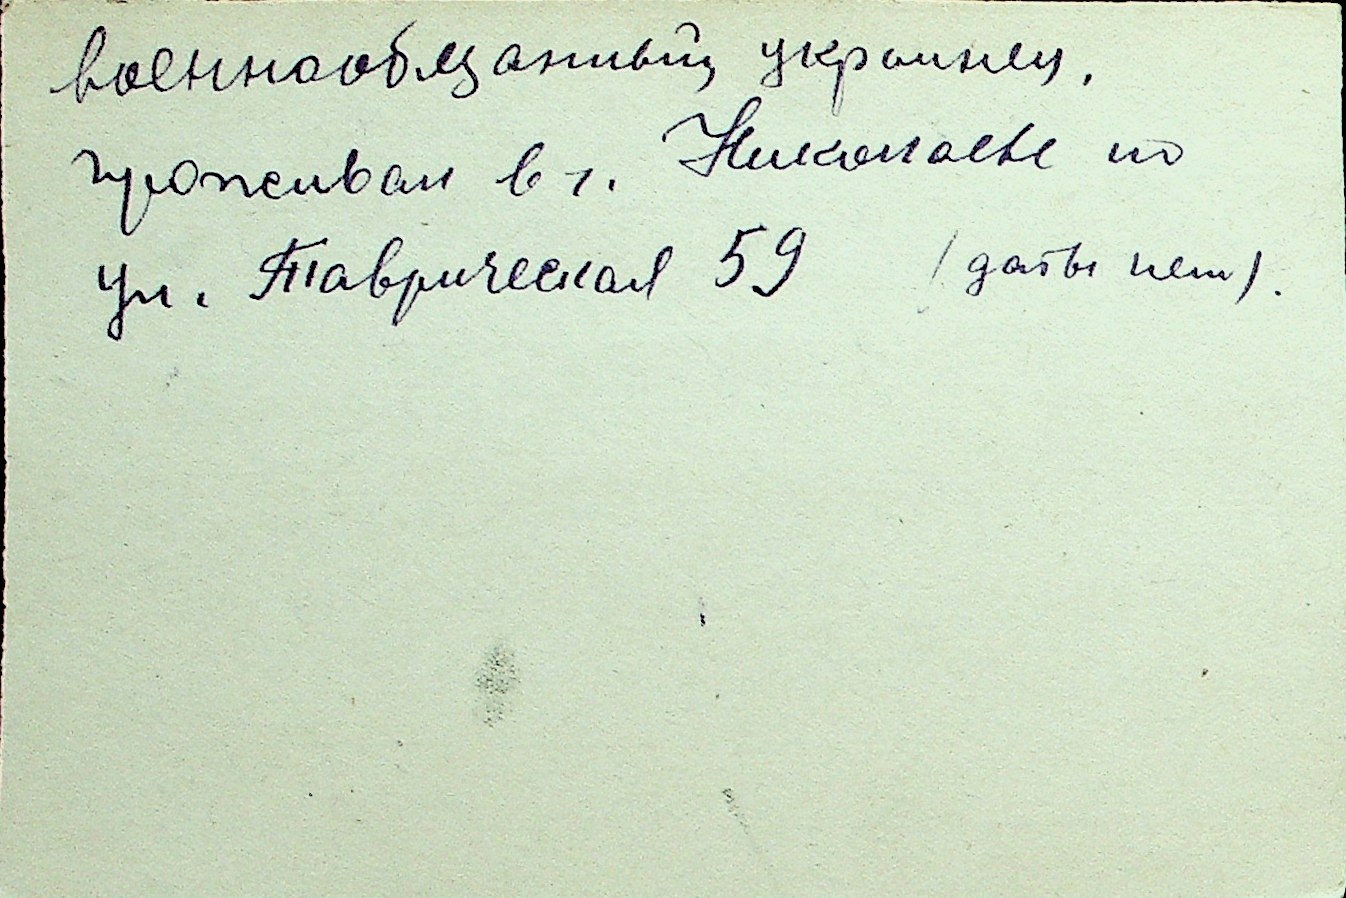 военнообязанный, украинец,
проживал в г. Николаеве по
ул. Таврическая 59 (даты нет).